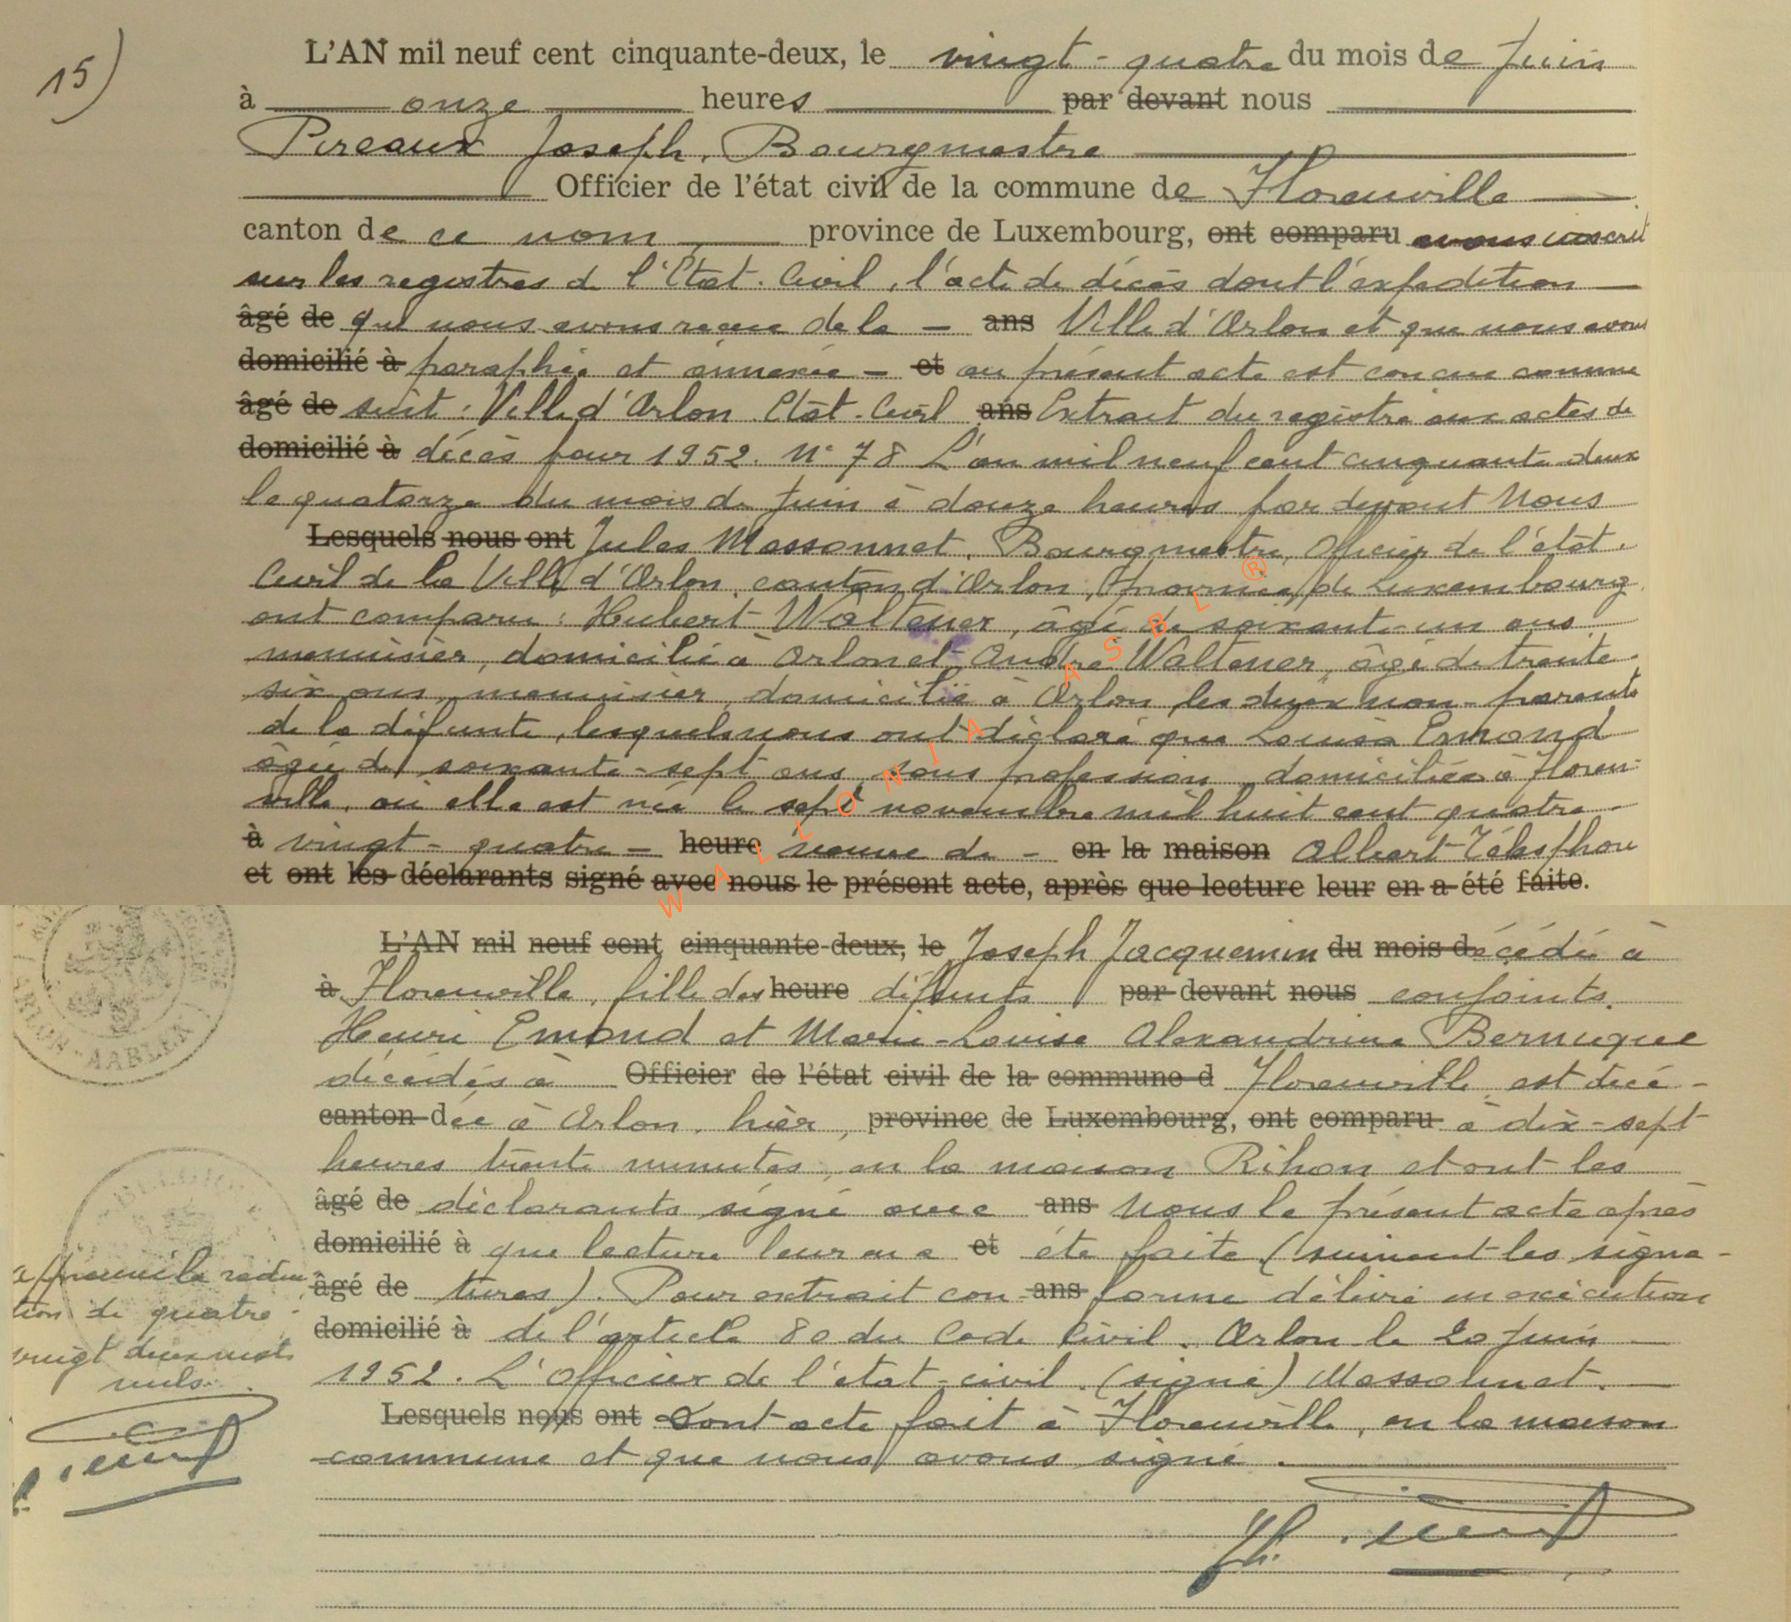 15)
L'AN mil neuf cent cinquante-deux, le vingt-quatre du mois de Juin
à onze heures par devant nous
Pireaux Joseph, Bourgmestre
Officier de l'état civil de la commune de Florenville
canton de ce nom, province de Luxembourg, ont comparu avons inscrit
sur les registres de l'Etat-Civil, l'acte de décès dont l'expédition
âgé de que nous avons reçue de la - ans Ville d'Arlon et que nous avons
domicilié à paraphée et annexée - et au présent acte est conçue comme
âgé de suit: Ville d'Arlon Etat-Civil ans Extrait du registre aux actes de
domicilié à décès pour 1952. N° 78 L'an mil neuf cent cinquante deux
le quatorze du mois de Juin à douze heures par devant Nous
Lesquels nous ont Jules Massonnet, Bourgmestre, Officier de l'état-
Civil de la Ville d'Arlon, canton d'Arlon, Province de Luxembourg,
ont comparu: Hubert Waltener, âgé de soixante-un ans
menuisier, domicilié à Arlon et André Waltener, âgé de trente-
six ans, menuisier, domicilié à Arlon, les deux non-parents
de la défunte, lesquels nous ont déclaré que Louisa Emond
âgée de soixante-sept ans, sans profession, domiciliée à Floren-
ville, où elle est née le sept novembre mil huit cent quatre-
à vingt-quatre - heure veuve de - en la maison Albert-Télesphore
et ont les déclarants signé avec nous le présent acte, après que lecture leur en a été faite.
WALLONIA ASBL ®
L'AN mil neuf cent cinquante-deux, le Joseph Jacquemin du mois décédé à
à Florenville, fille des heure défunts par devant nous conjoints.
Henri Emond et Marie-Louise Alexandrine Bernuque
décédés à Officier de l'état civil de la commune d Florenville, est décé-
canton dée à Arlon, hièr, province de Luxembourg, ont comparu à dix-sept
heures trente minutes, en la maison Rihon et ont les
âgé de déclarants signé avec ans Nous le présent acte après
domicilié à que lecture leur en a et été faite (suivent les signa-
âgé de tures). Pour extrait con- ans forme délivré en exécution
domicilié à de l'article 80 du Code Civil. Arlon le 20 Juin
1952. L'Officier de l'état-civil. (signé) Massonnet.
Lesquels nous ont Dont acte fait à Florenville, en la maison
commune et que nous avons signé.
ARLON - AARLEN
Approuvé la radia-
tion de quatre-
vingt deux mots
nuls.